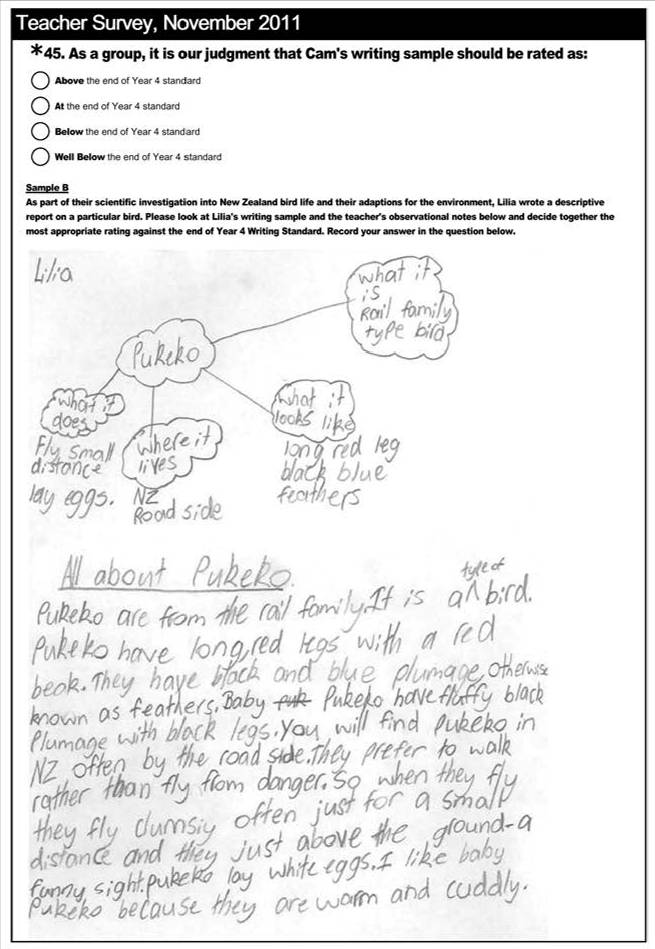 Teacher Survey, November 2011
*45. As a group, it is our judgment that Cam's writing sample should be rated as:
Above the end of Year 4 standard
At the end of Year 4 standard
Below the end of Year 4 standard
Well Below the end of Year 4 standard
Sample B
As part of their scientific investigation into New Zealand bird life and their adaptions for the environment, Lilia wrote a descriptive
report on a particular bird. Please look at Lilia's writing sample and the teacher's observational notes below and decide together the
most appropriate rating against the end of Year 4 Writing Standard. Record your answer in the question below.
Lilia
what it
is
Rail family
type bird
Pukeko
what it
does
Fly small
distance
lay eggs.
where it
lives
NZ
Road side
what it
looks like
long red leg
black blue
feathers
All about Pukeko.
Pukeko are from the rail family.It is a type of bird.
Pukeko have long,red legs with a red
beak.They have black and blue plumage, otherwise
known as feathers.Baby Pukeko have fluffy black
Plumage with black legs.You will find Pukeko in
NZ often by the road side.They prefer to walk
rather than fly from danger.So when they fly
they fly clumsiy often just for a small
distance and they just above the ground-a
funny sight.pukeko lay white eggs.I like baby
Pukeko because they are warm and cuddly.